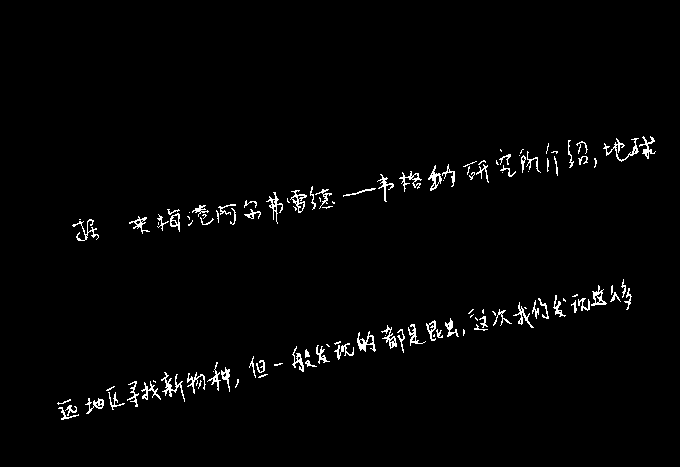 据 来梅港阿尔弗雷德——韦格纳研究所介绍,地球
远地区寻找新物种,但一般发现的都是昆虫,这次我们发现这么多